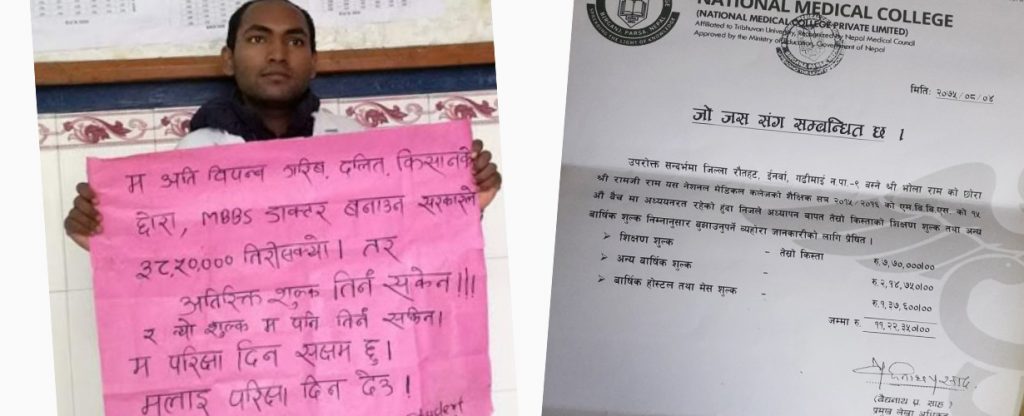 म अति विपन्न गरिब, दलित, किसानके
छोरा, MBBS डाक्टर बनाउन सरकारले
३८५०,००० तिरीसक्यो। तर
अतिरिक्त शुल्क तिर्न सकेन!!!
र त्यो शुल्क म पनि तिर्न सक्दिन।
म परिक्षा दिन सक्षम हु।
मलाइ परिक्षा दिन देउ!
student
NATIONAL MEDICAL COLLEGE
(NATIONAL MEDICAL COLLEGE PRIVATE LIMITED)
Affiliated to Tribhuvan University, Recognized by Nepal Medical Council
Approved by the Ministry of Education, Government of Nepal
मिति: २०७५/०८/०४
जो जस संग सम्बन्धित छ ।
उपरोक्त सन्दर्भमा जिल्ला रौतहट, ईनर्वा, गढीमाई न.पा.-९ बस्ने श्री भोला राम को छोरा
श्री रामजी राम यस नेशनल मेडिकल कलेजको शैक्षिक सत्र २०१५/२०१६ को एम.बि.बि.एस. को १५
औ बैच मा अध्ययनरत रहेको हुंदा निजले अध्यापन बापत तेस्रो किस्ताको शिक्षण शुल्क तथा अन्य
बार्षिक शुल्क निम्नानुसार बुझाउनुपर्ने ब्यहोरा जानकारीको लागि प्रेषित ।
➢ शिक्षण शुल्क - तेस्रो किस्ता रु.७,७०,०००।००
➢ अन्य बार्षिक शुल्क - रु.२,१४,७५०।००
➢ बार्षिक होस्टल तथा मेस शुल्क - रु.१,३७,६००।००
जम्मा रु. ११,२२,३५०।००
(बैद्यनाथ प्र. साह)
प्रमुख लेखा अधिकृत